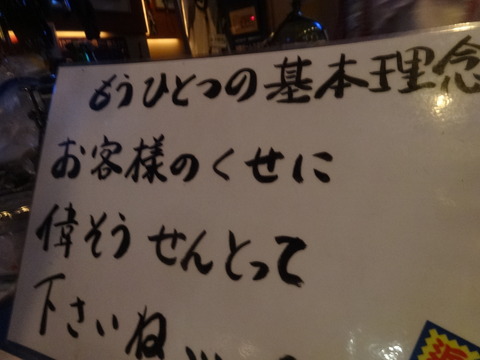 もうひとつの基本理念
お客様のくせに
偉そうせんとって
下さいね